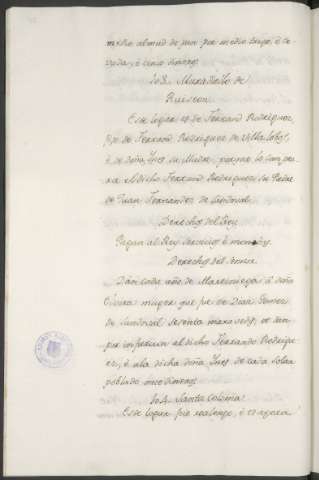 medio almud de pan por medio trigo, é ce-
vada, é cinco dineros.
103. Maradiello de
Este logar es de Ferrand Rodriguez,
fijo de Ferrand Rodriguez de Villalobos,
é de doña Ynes su Madre, porque lo compra-
ra el dicho Ferrand Rodriguez su Padre
de Juan Fernandez de Sandoval.
Derechos del Rey
Pagan al Rey servicios é monedas
Derechos del Señor
Dan cada año de Martiniega á doña
Elvira muger que fue de Diag Gomez
de Sandoval sesenta maravedis, et dan
por infurcion al dicho Ferrando Rodrigu-
ez, é á la dicha doña Ynes de cada solar
poblado nueve dineros.
104. Santa Coloma
Este logar fue realengo, é es agora